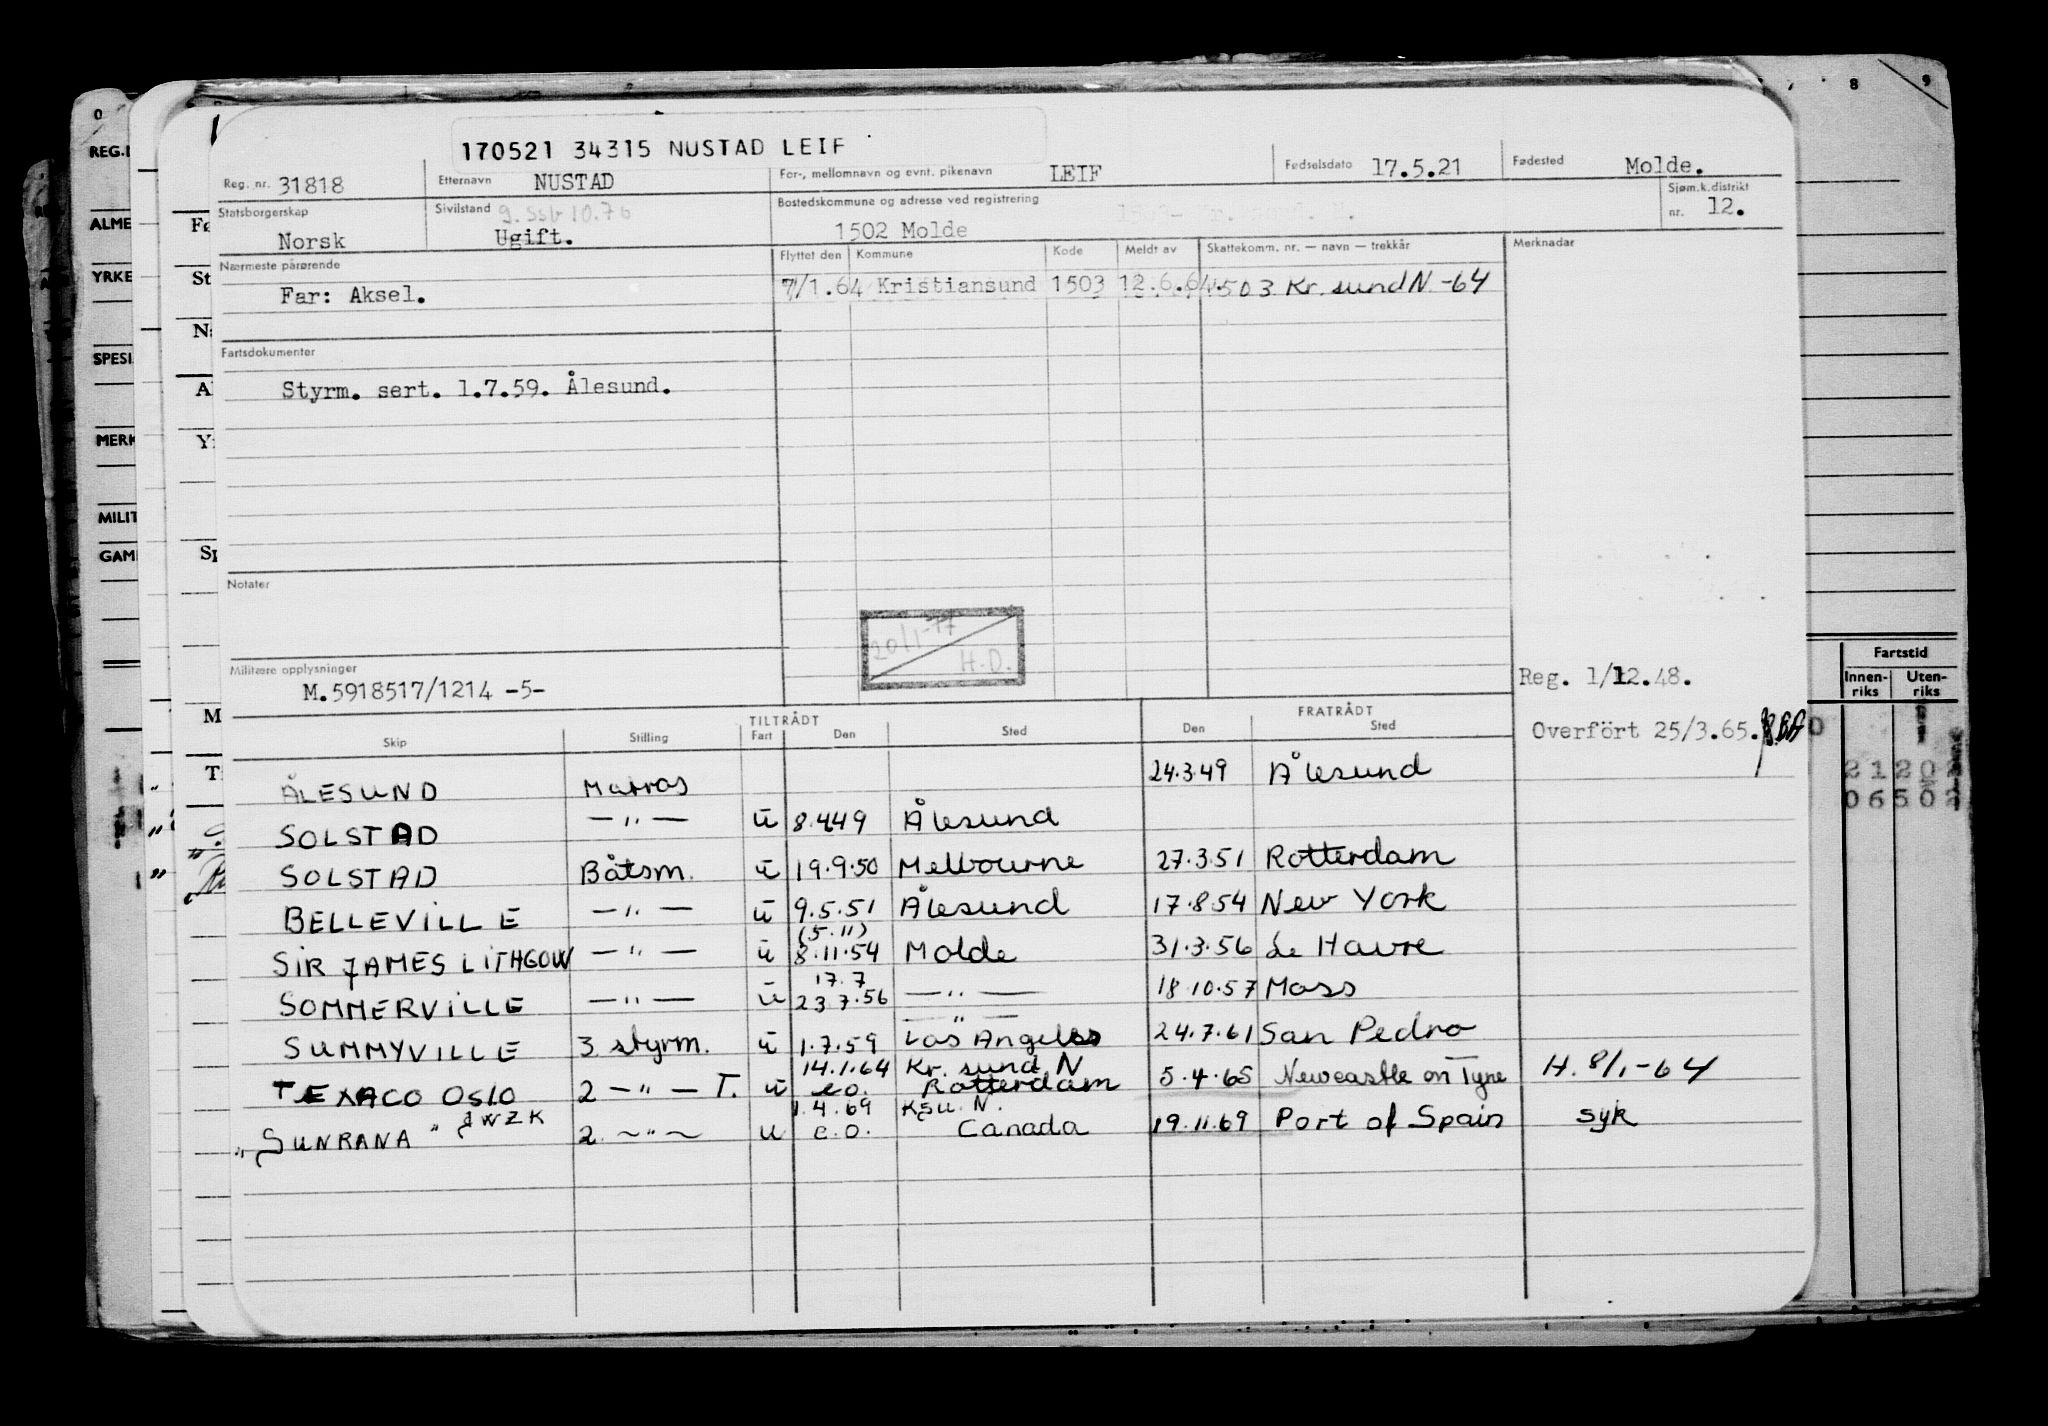 170521 34315 NUSTAD LEIF
Reg. nr. 31818 Etternavn NUSTAD For-, mellomnavn og evnt. pikenavn LEIF Fødselsdato 17.5.21 Fødested Molde.
Statsborgerskap Norsk Sivilstand g. Ssb 10.76 Ugift. Bostedskommune og adresse ved registrering 1502 Molde Sjøm.k.distrikt nr. 12.
Nærmeste pårørende Flyttet den Kommune Kode Meldt av Skattekomm. nr. — navn — trekkår Merknader
Far: Aksel. 7/1.64 Kristiansund 1503 12.6.64. 1503 Kr.sund N.-64
Fartsdokumenter
Styrm. sert. 1.7.59. Ålesund.
Notater
20/1-77
H.D.
Militære opplysninger
M.5918517/1214 -5-
Reg. 1/12.48.
TILTRÅDT FRATRÅDT
Skip Stilling Fart Den Sted Den Sted
Overfört 25/3.65.
ÅLESUND Matros 24.3.49 Ålesund
SOLSTAD —"— u 8.4.49 Ålesund
SOLSTAD Båtsm. u 19.9.50 Melbourne 27.3.51 Rotterdam
BELLEVILLE —"— u 9.5.51 Ålesund 17.8.54 New York
(5.11)
SIR JAMES LITHGOW —"— u 8.11.54 Molde 31.3.56 Le Havre
17.7
SOMMERVILLE —"— u 23.7.56 —"— 18.10.57 Moss
—"—
SUMMYVILLE 3 styrm. u 1.7.59 Los Angeles 24.7.61 San Pedro
14.1.64 Kr.sund N
TEXACO OSLO 2 —"— T. u e.o. Rotterdam 5.4.65 Newcastle on Tyne H. 8/1-64
1.4.69 Ksu. N.
"SUNRANA" JWZK 2. —"— u e.o. Canada 19.11.69 Port of Spain syk
0 8 9
REG.
ALME
YRKE
SPESI
MERK
MILIT
GAM
Fø
St
Na
A
Y
Sp
M
T
Fartstid
Innen-riks Uten-riks
2120
06502